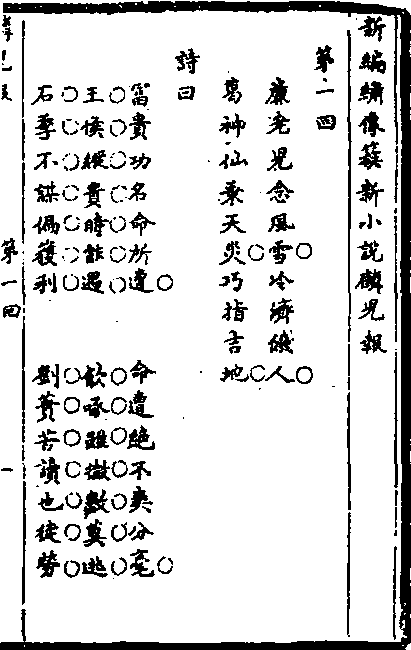 新編繡像簇新小說麟兒報
第一回
廉老兒念風雪冷濟饑人
葛神仙乘天災巧指吉地
詩曰
富貴功名命所遭 命遭絕不爽分毫
王侯縱貴時難遇 飲啄雖微數莫逃
石季不謀偏獲利 劉蕡苦讀也徒勞
麟兒報 第一回 一